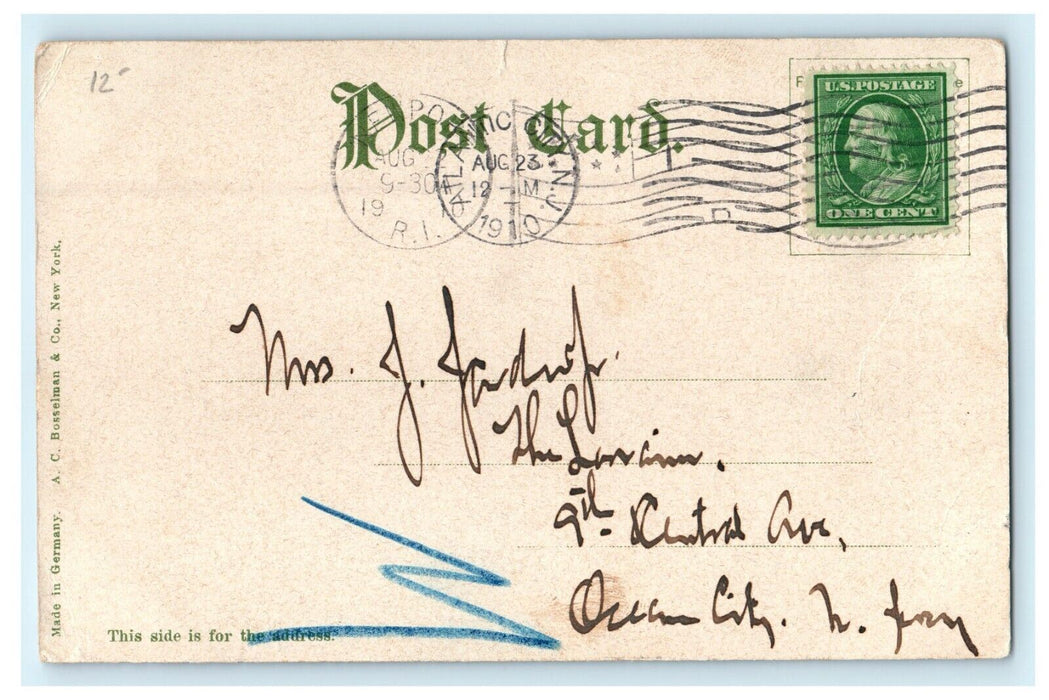 12
Post Card.
U.S. POSTAGE
ONE CENT
NEWPORT
AUG
9-30
19
R.I.
ATLANTIC CITY, N.J.
AUG 23
12 - M
1910
D
Mrs. J.
The Lorraine.
9th. & Central Ave,
Ocean City. N. Jersey
Made in Germany. A. C. Bosselman & Co., New York.
This side is for the address.